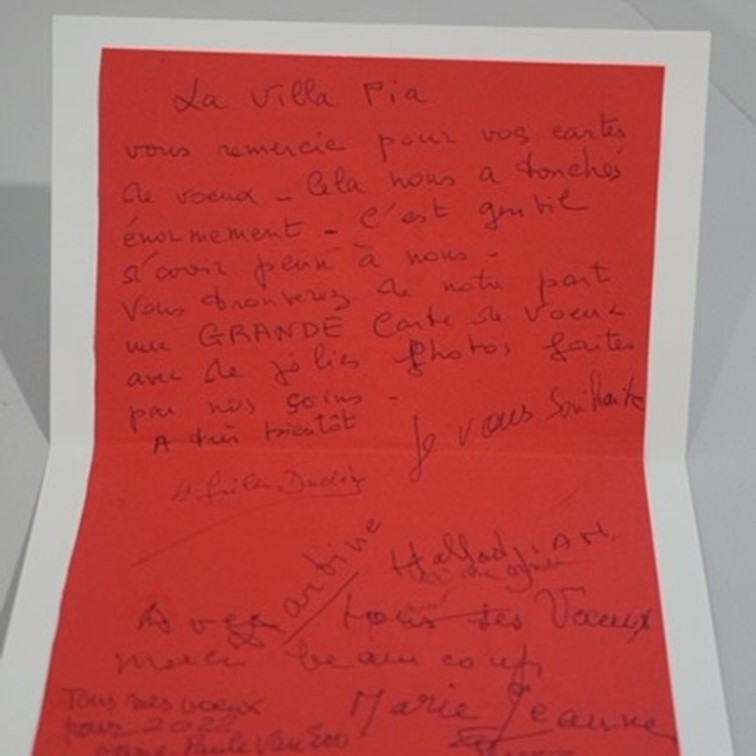 La Villa Pia
vous remercie pour vos cartes
de voeux - Cela nous a touchés
énormement - C'est gentil
d'avoir pensé à nous -
Vous trouverez de notre part
une GRANDE Carte de Voeux
avec de jolies photos faites
par nos soins -
A très bientôt
Je vous souhaite
Martine
Avec tous les Vœux
merci beaucoup
Marie Jeanne
Tous mes voeux
pour 2022
Marie-Paule